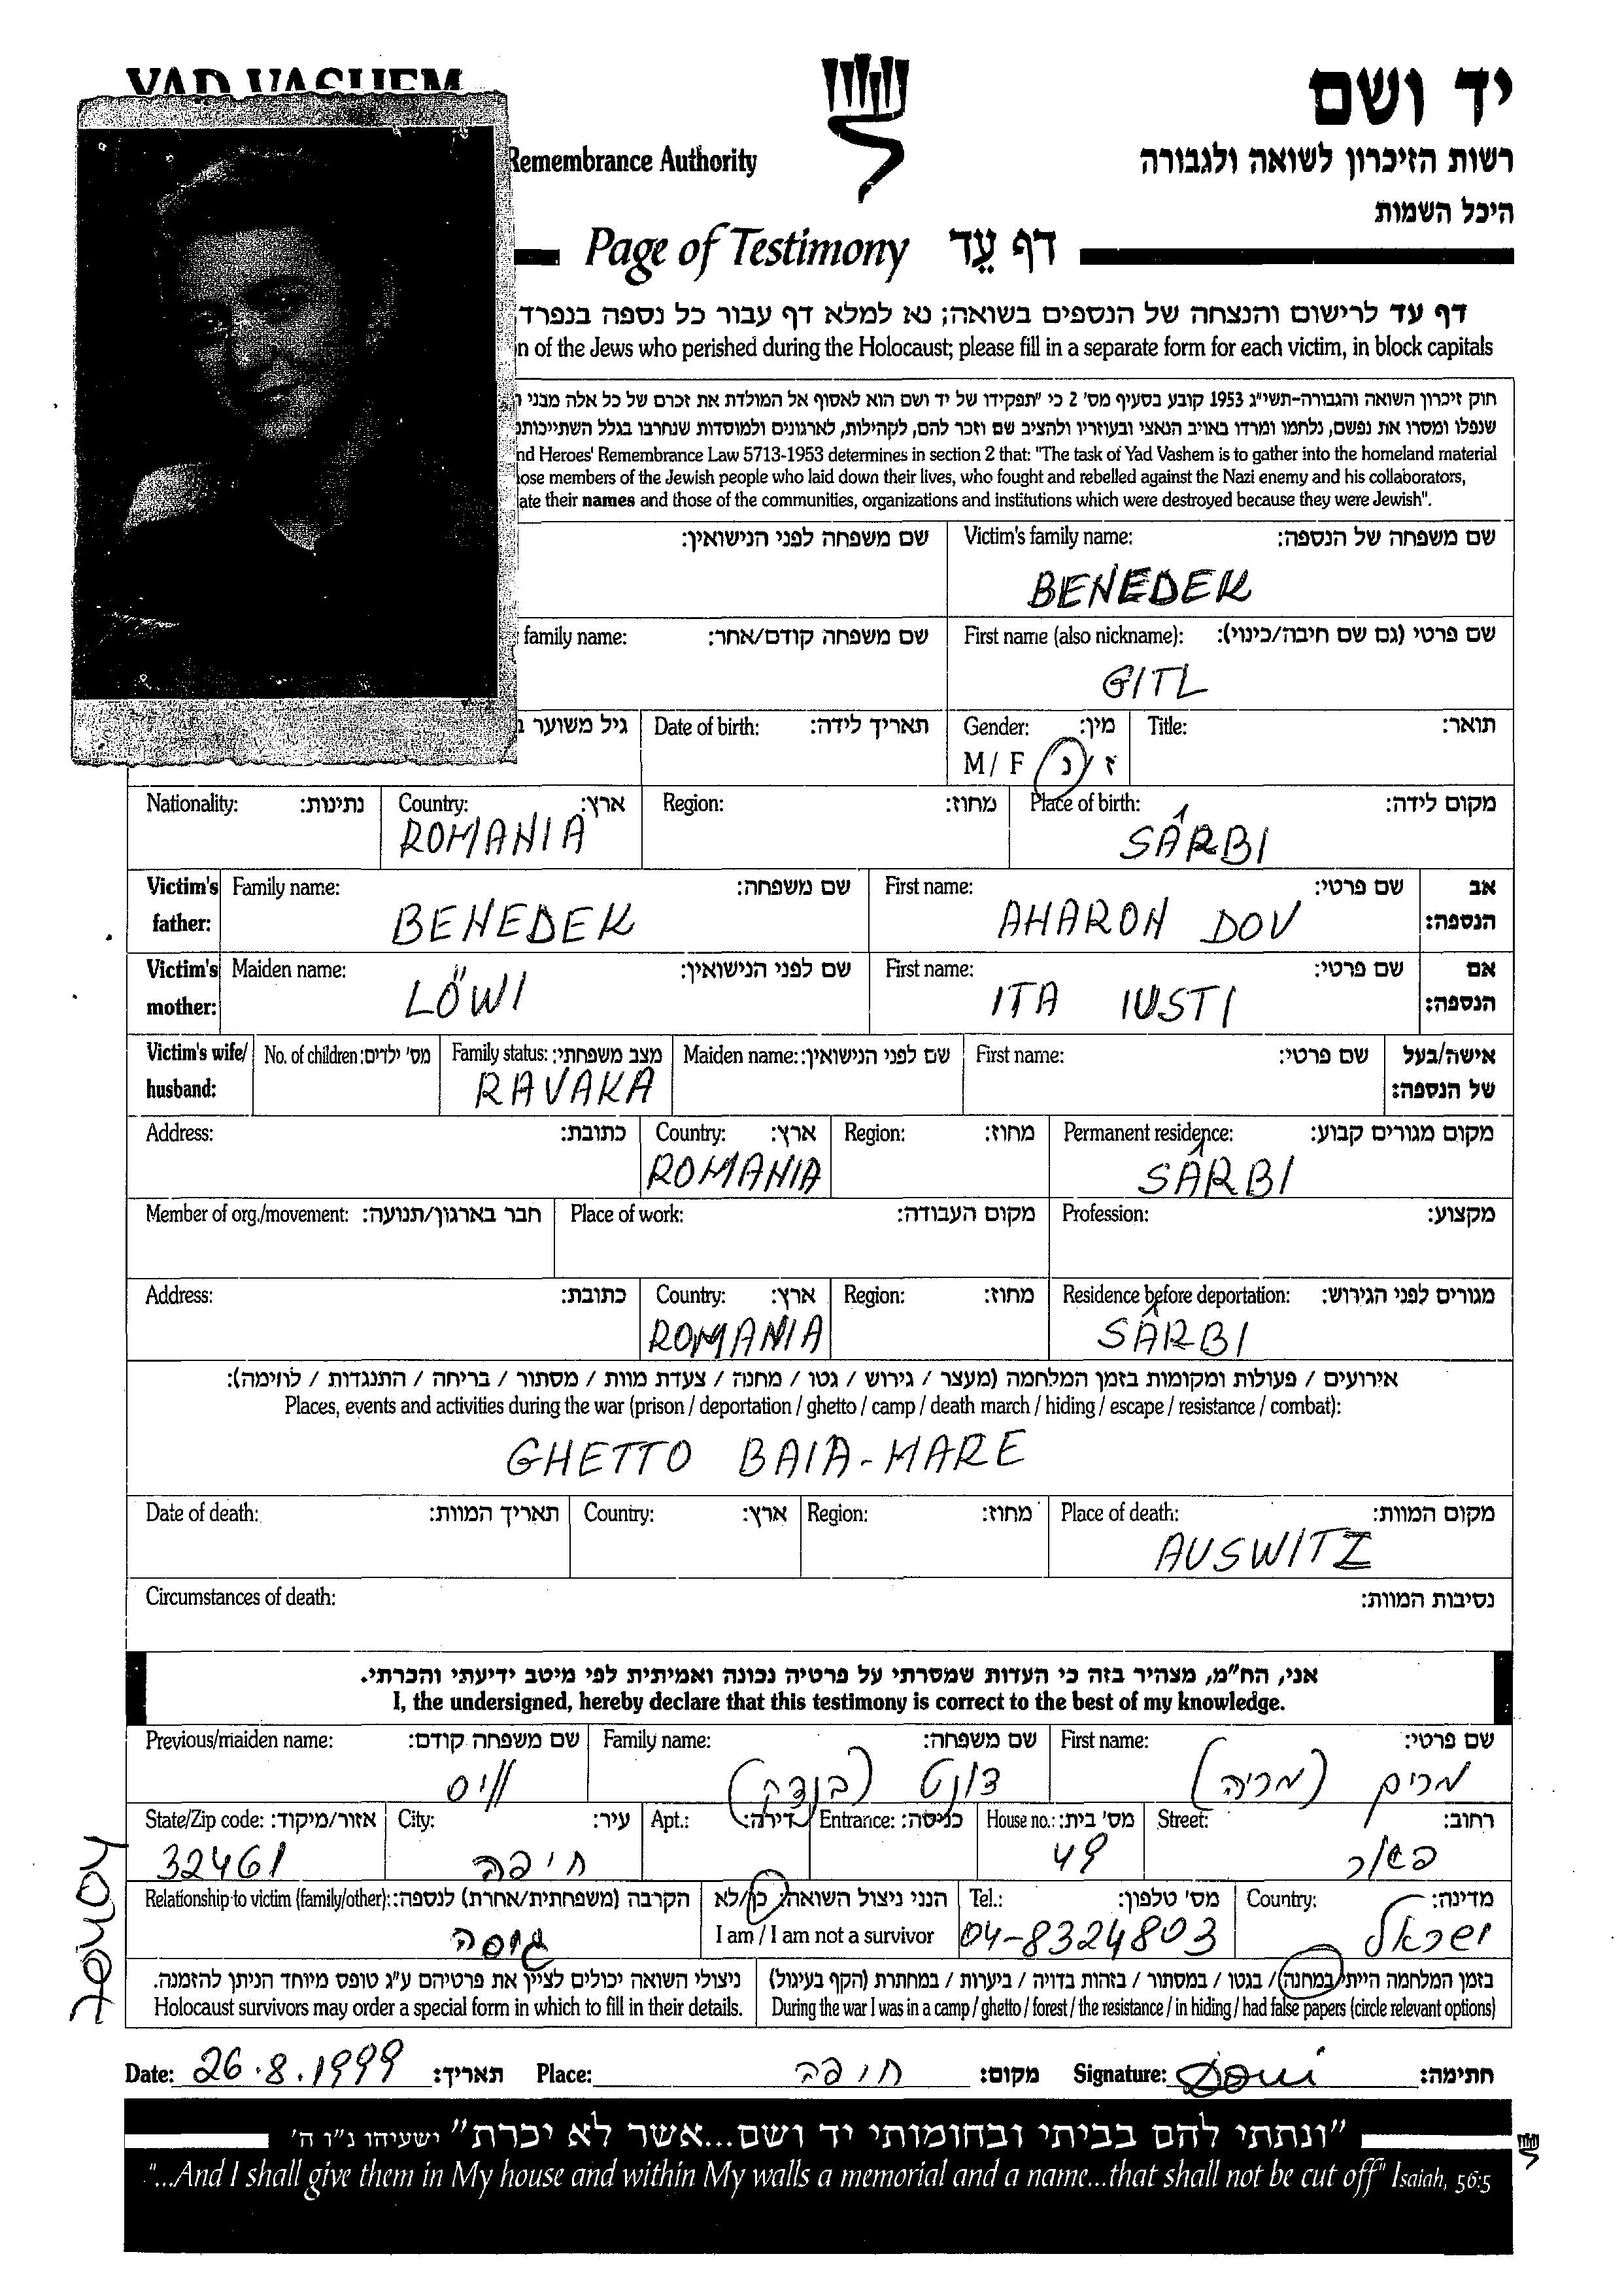 YAD VASHEM
יד ושם
Remembrance Authority
רשות הזיכרון לשואה ולגבורה
היכל השמות
Page of Testimony דף עֵד
דף עד לרישום והנצחה של הנספים בשואה; נא למלא דף עבור כל נספה בנפרד
n of the Jews who perished during the Holocaust; please fill in a separate form for each victim, in block capitals
חוק זיכרון השואה והגבורה-תשי"ג 1953 קובע בסעיף מס' 2 כי "תפקידו של יד ושם הוא לאסוף אל המולדת את זכרם של כל אלה מבני
שנפלו ומסרו את נפשם, נלחמו ומרדו באויב הנאצי ובעוזריו ולהציב שם וזכר להם, לקהילות, לארגונים ולמוסדות שנחרבו בגלל השתייכותם
nd Heroes' Remembrance Law 5713-1953 determines in section 2 that: "The task of Yad Vashem is to gather into the homeland material
ose members of the Jewish people who laid down their lives, who fought and rebelled against the Nazi enemy and his collaborators,
ate their names and those of the communities, organizations and institutions which were destroyed because they were Jewish".
Victim's family name: שם משפחה של הנספה:
BENEDEK
שם משפחה לפני הנישואין:
First name (also nickname): שם פרטי (גם שם חיבה/כינוי):
GITL
family name: שם משפחה קודם/אחר:
Title: תואר:
Gender: מין:
M / F ז / נ
Date of birth: תאריך לידה:
גיל משוער ב
Place of birth: מקום לידה:
SÂRBI
Region: מחוז:
Country: ארץ:
ROMANIA
Nationality: נתינות:
Victim's father: אב הנספה:
First name: שם פרטי:
AHARON DOV
Family name: שם משפחה:
BENEDEK
Victim's mother: אם הנספה:
First name: שם פרטי:
ITA IUSTI
Maiden name: שם לפני הנישואין:
LÖWI
Victim's wife/ husband: אישה/בעל של הנספה:
First name: שם פרטי:
Maiden name: שם לפני הנישואין:
Family status: מצב משפחתי:
RAVAKA
No. of children: מס' ילדים:
Permanent residence: מקום מגורים קבוע:
SÂRBI
Region: מחוז:
Country: ארץ:
ROMANIA
Address: כתובת:
Profession: מקצוע:
Place of work: מקום העבודה:
Member of org./movement: חבר בארגון/תנועה:
Residence before deportation: מגורים לפני הגירוש:
SÂRBI
Region: מחוז:
Country: ארץ:
ROMANIA
Address: כתובת:
אירועים / פעולות ומקומות בזמן המלחמה (מעצר / גירוש / גטו / מחנה / צעדת מוות / מסתור / בריחה / התנגדות / לחימה):
Places, events and activities during the war (prison / deportation / ghetto / camp / death march / hiding / escape / resistance / combat):
GHETTO BAIA-MARE
Place of death: מקום המוות:
AUSWITZ
Region: מחוז:
Country: ארץ:
Date of death: תאריך המוות:
Circumstances of death: נסיבות המוות:
אני, הח"מ, מצהיר בזה כי העדות שמסרתי על פרטיה נכונה ואמיתית לפי מיטב ידיעתי והכרתי.
I, the undersigned, hereby declare that this testimony is correct to the best of my knowledge.
First name: שם פרטי:
מרים (מריה)
Family name: שם משפחה:
(בנדק)
Previous/maiden name: שם משפחה קודם:
וייס
Street: רחוב:
House no.: מס' בית:
49
Entrance: כניסה:
Apt.: דירה:
City: עיר:
חיפה
State/Zip code: אזור/מיקוד:
32461
Country: מדינה:
ישראל
Tel.: מס' טלפון:
04-8324803
הנני ניצול השואה: כן/לא
I am / I am not a survivor
Relationship to victim (family/other): הקרבה (משפחתית/אחרת) לנספה:
גיסה
בזמן המלחמה הייתי במחנה / בגטו / במסתור / בזהות בדויה / ביערות / במחתרת (הקף בעיגול)
During the war I was in a camp / ghetto / forest / the resistance / in hiding / had false papers (circle relevant options)
ניצולי השואה יכולים לציין את פרטיהם ע"ג טופס מיוחד הניתן להזמנה.
Holocaust survivors may order a special form in which to fill in their details.
Date: 26.8.1999 תאריך: Place: חיפה מקום: Signature: חתימה:
"ונתתי להם בביתי ובחומותי יד ושם...אשר לא יכרת" ישעיהו נ"ו ה'
"...And I shall give them in My house and within My walls a memorial and a name...that shall not be cut off" Isaiah, 56:5